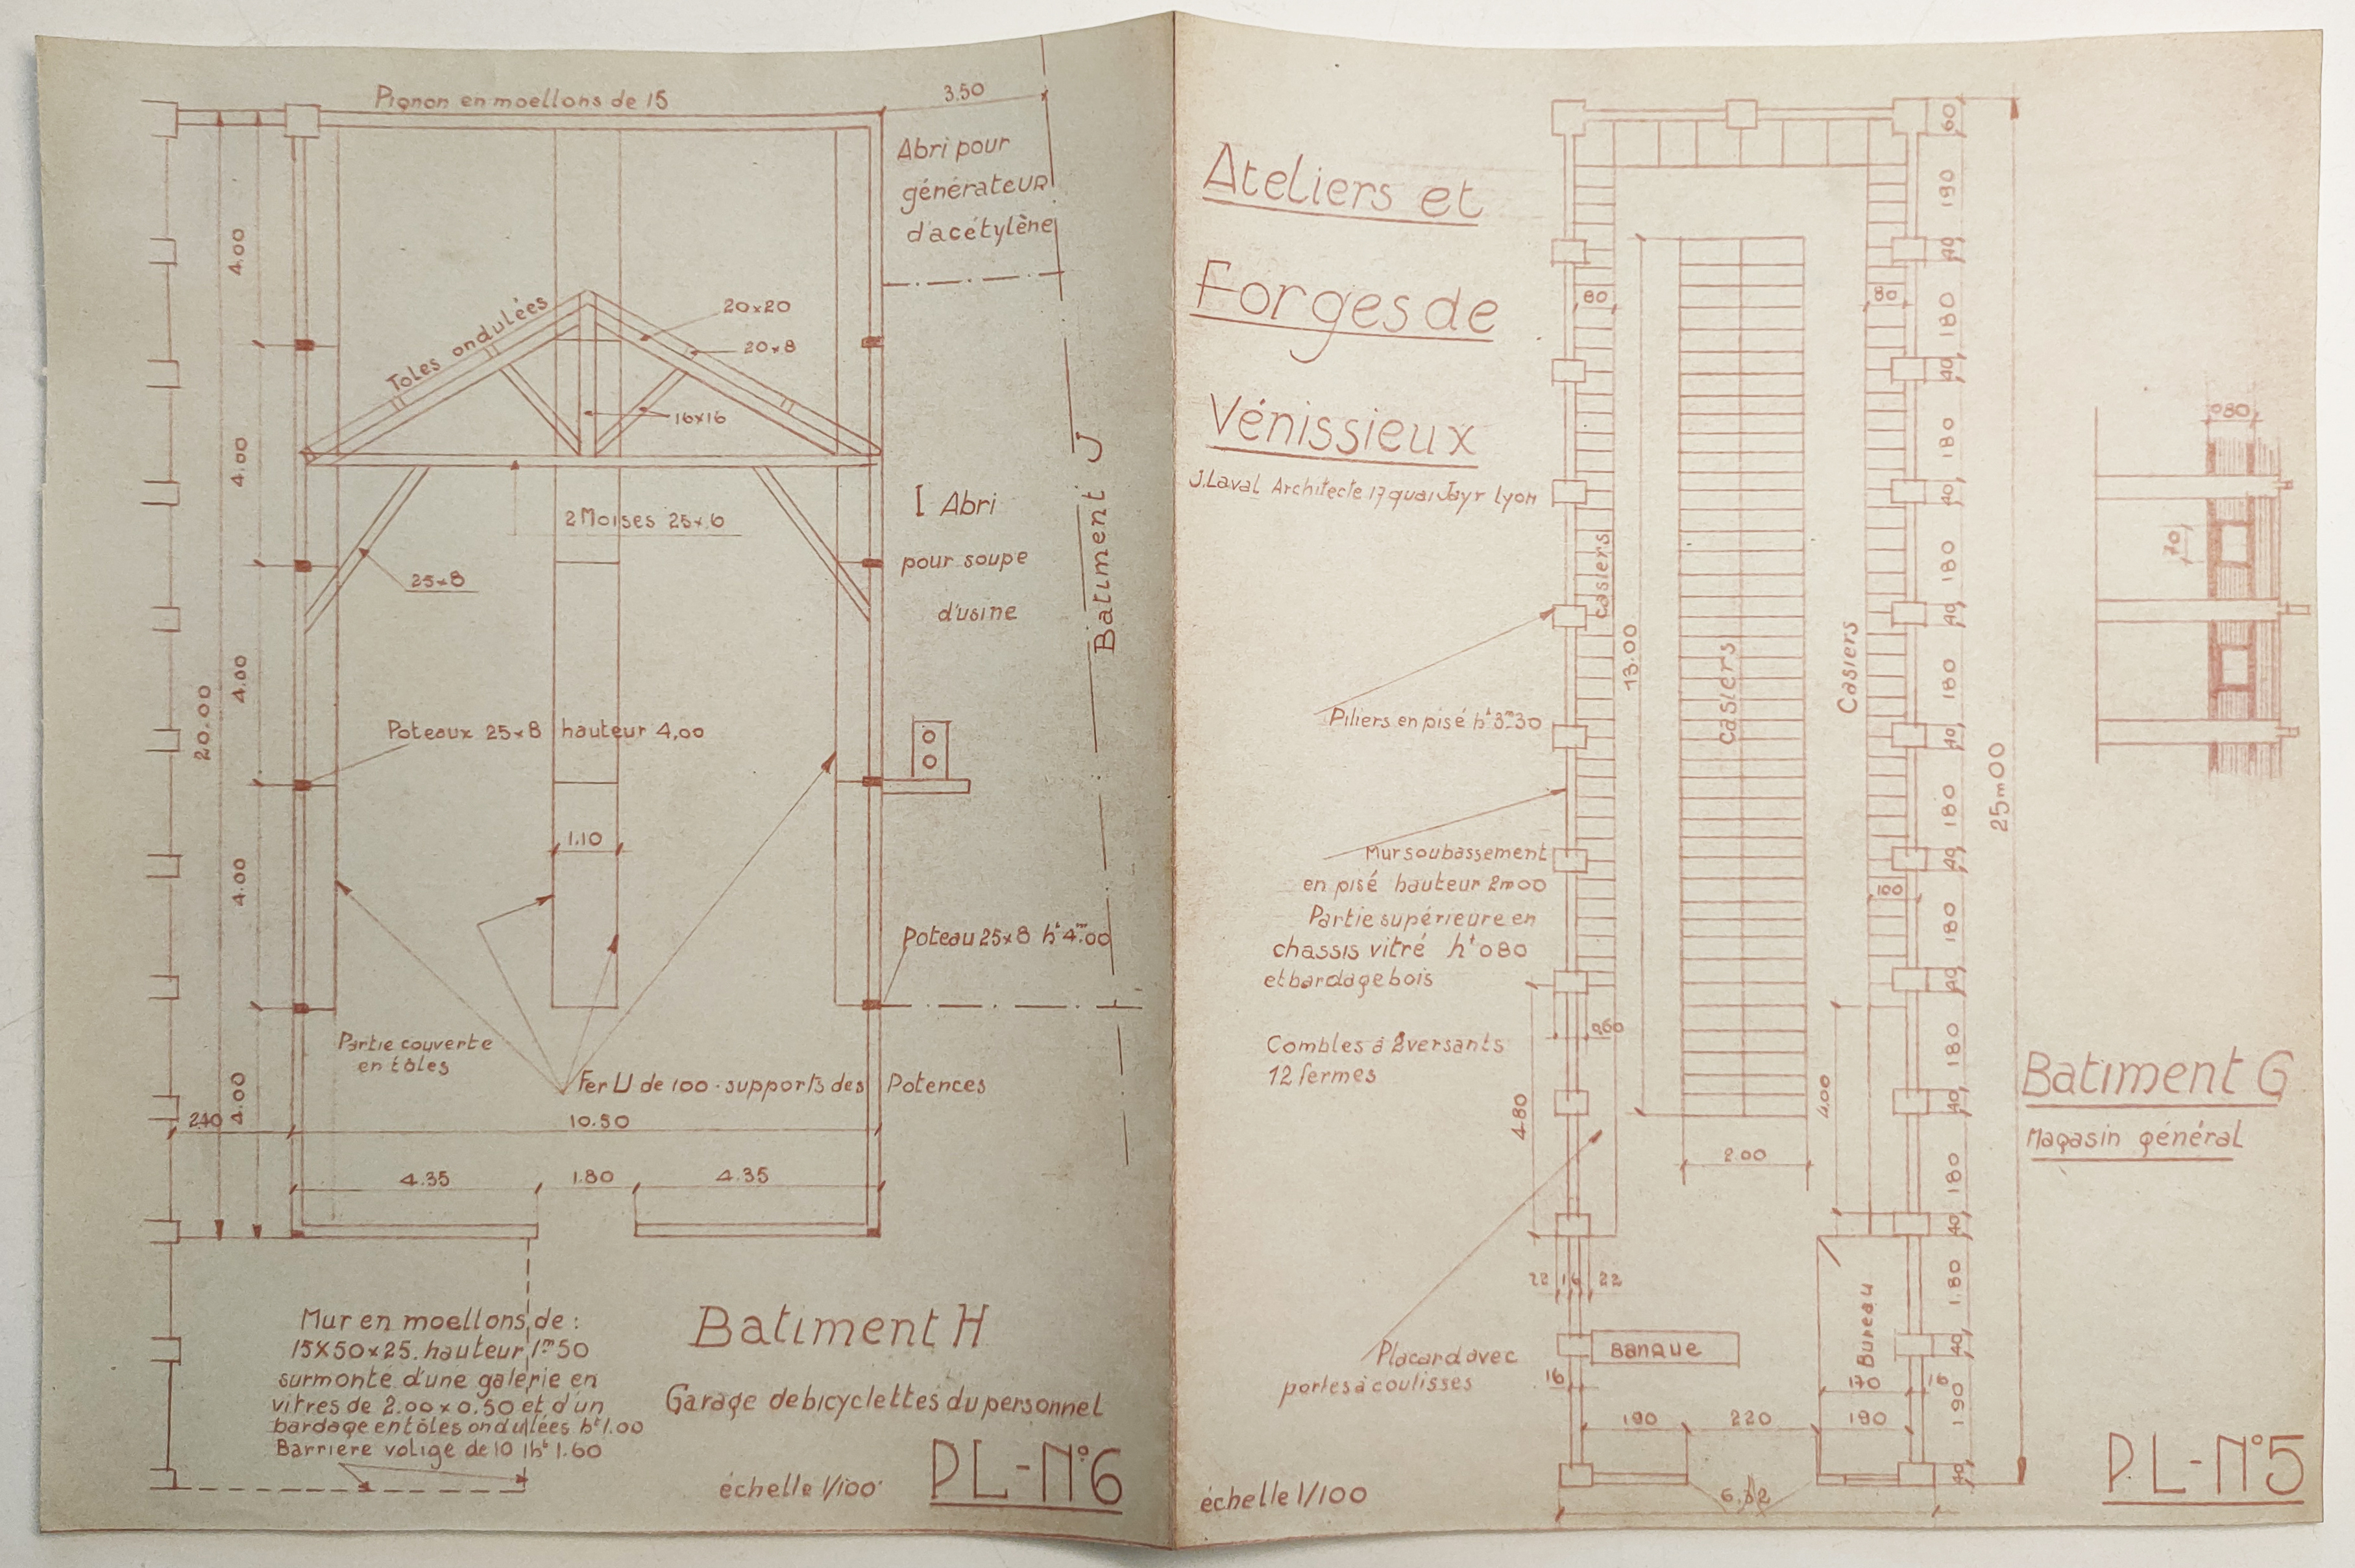 Pignon en moellons de 15
3.50
Abri pour
générateur
d'acétylène
4.00
Toles ondulées
20x20
20x8
16x16
4.00
2 Moises 25x6
25x8
I Abri
pour soupe
d'usine
Batiment J
4.00
20.00
Poteaux 25x8 hauteur 4,00
1.10
4.00
Poteau 25x8 ht 4m.00
Partie couverte
en tôles
Fer U de 100 - supports des Potences
4.00
240
10.50
4.35
1.80
4.35
Mur en moellons de :
15X50x25. hauteur 1m50
surmonté d'une galerie en
vitres de 2.00 x 0.50 et d'un
bardage en tôles ondulées ht 1.00
Barrière volige de 10 1ht 1.60
Batiment H
Garage de bicyclettes du personnel
échelle 1/100
PL-N°6
Ateliers et
Forges de
Vénissieux
J. Laval Architecte 17 quai Jayr Lyon
Piliers en pisé ht 3m30
Mur soubassement
en pisé hauteur 2m00
Partie supérieure en
chassis vitré ht 080
et bardage bois
Combles à 2 versants
12 fermes
Placard avec
portes à coulisses
échelle 1/100
60
190
40
80
80
180
40
180
40
casiers
180
40
13.00
casiers
Casiers
180
40
25m00
180
40
100
180
40
060
180
40
4.80
4.00
2.00
180
40
22 16 22
1.80
Banque
Bureau
40
16
170
16
190
190
220
190
40
080
70
Batiment G
Magasin général
PL-N°5